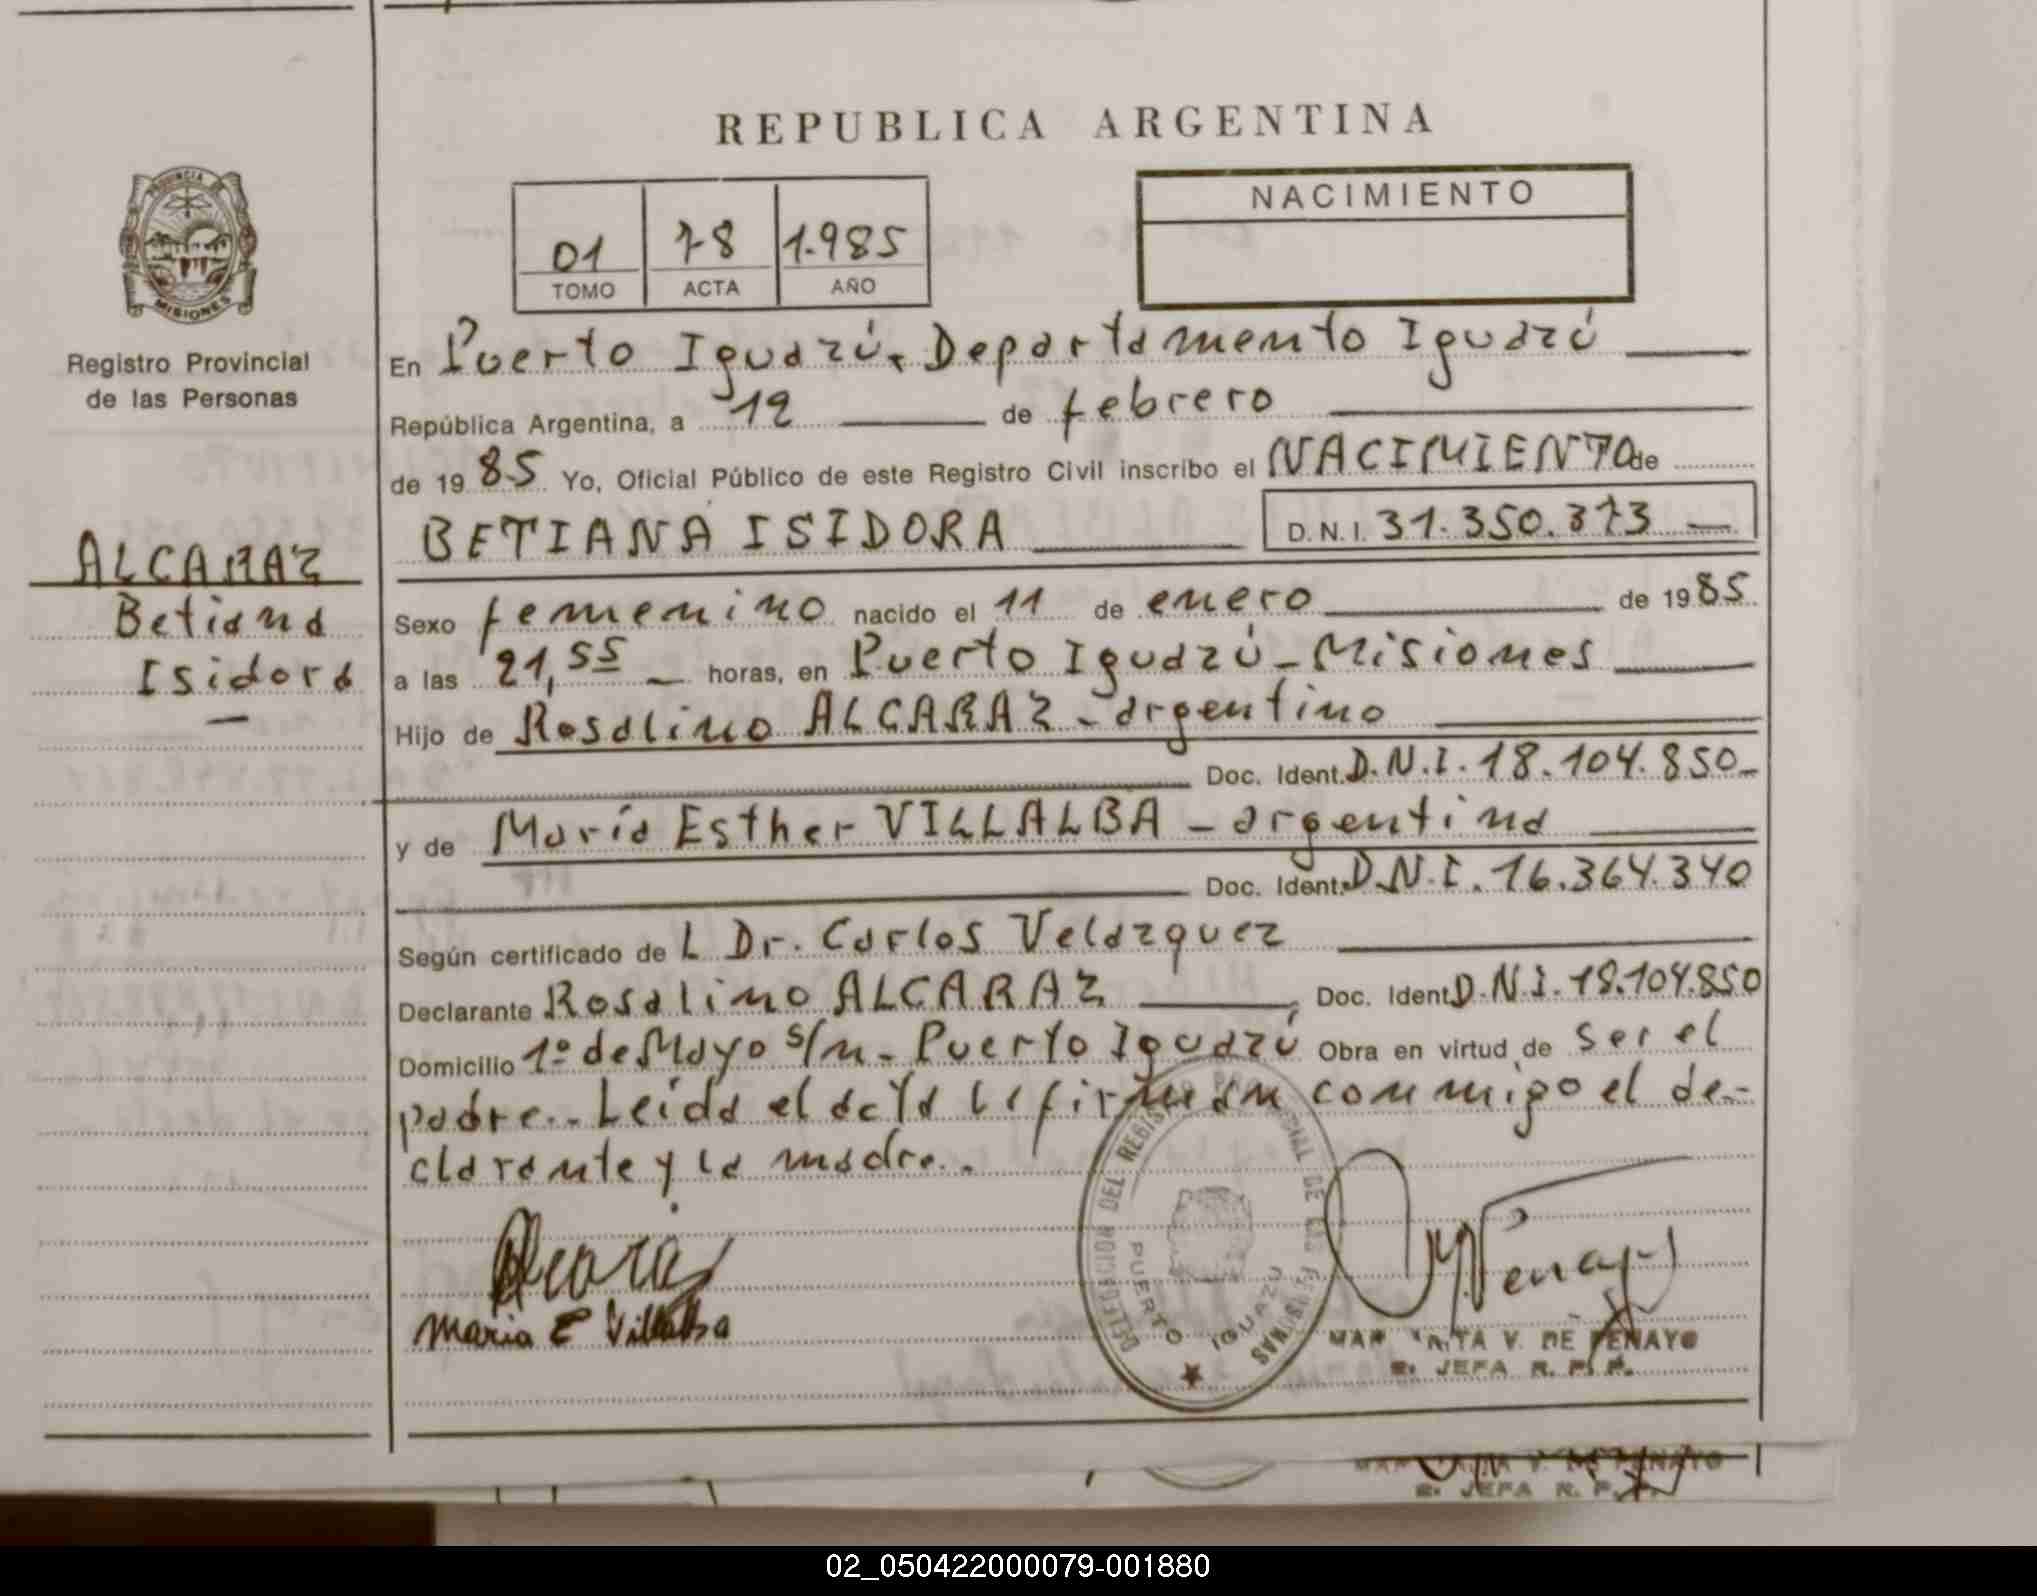 REPUBLICA ARGENTINA
PROVINCIA DE
MISIONES
Registro Provincial
de las Personas
01 78 1.985
TOMO ACTA AÑO
NACIMIENTO
En Puerto Iguazú, Departamento Iguazú
República Argentina, a 12 de febrero
de 1985 Yo, Oficial Público de este Registro Civil inscribo el NACIMIENTO de
BETIANA ISIDORA D.N.I. 31.350.373
ALCARAZ
Betiana
Isidora
Sexo femenino nacido el 11 de enero de 1985
a las 21,55 horas, en Puerto Iguazú - Misiones
Hijo de Rosalino ALCARAZ - argentino
Doc. Ident. D.N.I. 18.104.850-
y de María Esther VILLALBA - argentina
Doc. Ident. D.N.I. 16.364.340
Según certificado de L Dr. Carlos Velazquez
Declarante Rosalino ALCARAZ, Doc. Ident D.N.I. 18.104.850
Domicilio 1º de Mayo s/n - Puerto Iguazú Obra en virtud de ser el
padre.- Leída el acta la firman conmigo el de-
clarante y la madre.-
Alcaraz
Maria E Villalba
DELEGACION DEL REGISTRO PROVINCIAL DE LAS PERSONAS
PUERTO IGUAZU
V. DE PENAYO
JEFA R. P. P.
V. DE PENAYO
JEFA R. P.
02_050422000079-001880